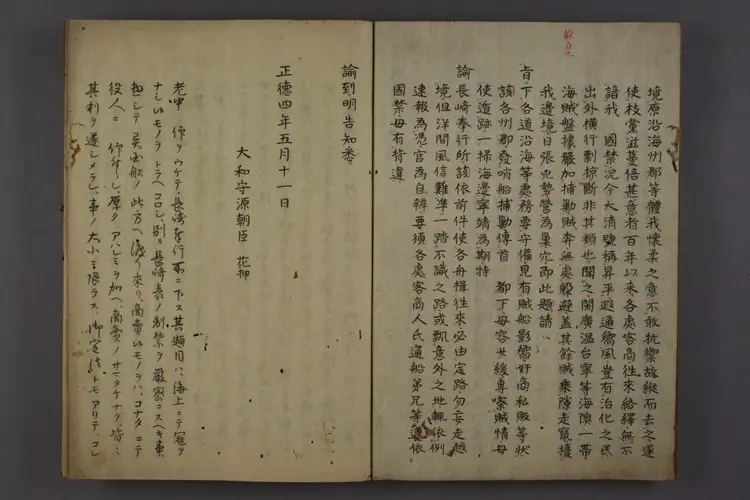 境原沿海州郡等體我懷柔之意不敢抗禦故縦而去之遂
使枝黨滋蔓倍甚意者百年以来各處客商往来絡繹無不
諳我 國禁況今大清號稱昇平遐邇嚮風豈有治化之民
出外横行剽掠斷非其類也聞之閩廣温台寧等海隩一帯
海賊盤據嚴加捕勦賊奔無處躱避蓋其餘賊乗隙走竄擾
我邊境日張兇勢營為巢穴即此題請
旨下各道沿海等處務要守備見有賊船影嚮奸商私販等状
該各州郡發哨船捕勦傳首 都下毋容少緩專察賊情毋
使遺跡一掃海邊寧靖為期特
諭長崎奉行所該依前件使各舟楫往来必由定路勿妄走越
境但洋間風信難準一踏不識之路或飄意外之地輒依例
速報為憑官為自辨要須各處客商人氏逓船第兄等遵依
國禁毋有背違
諭到明告知悉
正徳四年五月十一日
大和守源朝臣 花押
老中 仰ヲウケテ長崎奉行所ニ下ス其題目ハ海上ニテ寇ヲ
ナシヽモノヲトラヘコロシ別ニ長崎表ノ制禁ヲ嚴密ニスヘキ事
ニテ異國船ノ此方ヘ渡リ来リ商賣シモノヲハコナタニテ
役人ニ 仰付ラレ厚クアハレミヲ加ヘ商賣ノサマタケナク皆ニ
其利ヲ遂シメラレ事ノ大小ニ限ラス御定法トモアリテコレ